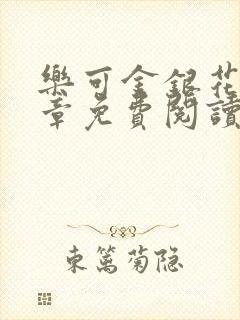 樂可金銀花
章免費閱讀
東篱菊隐